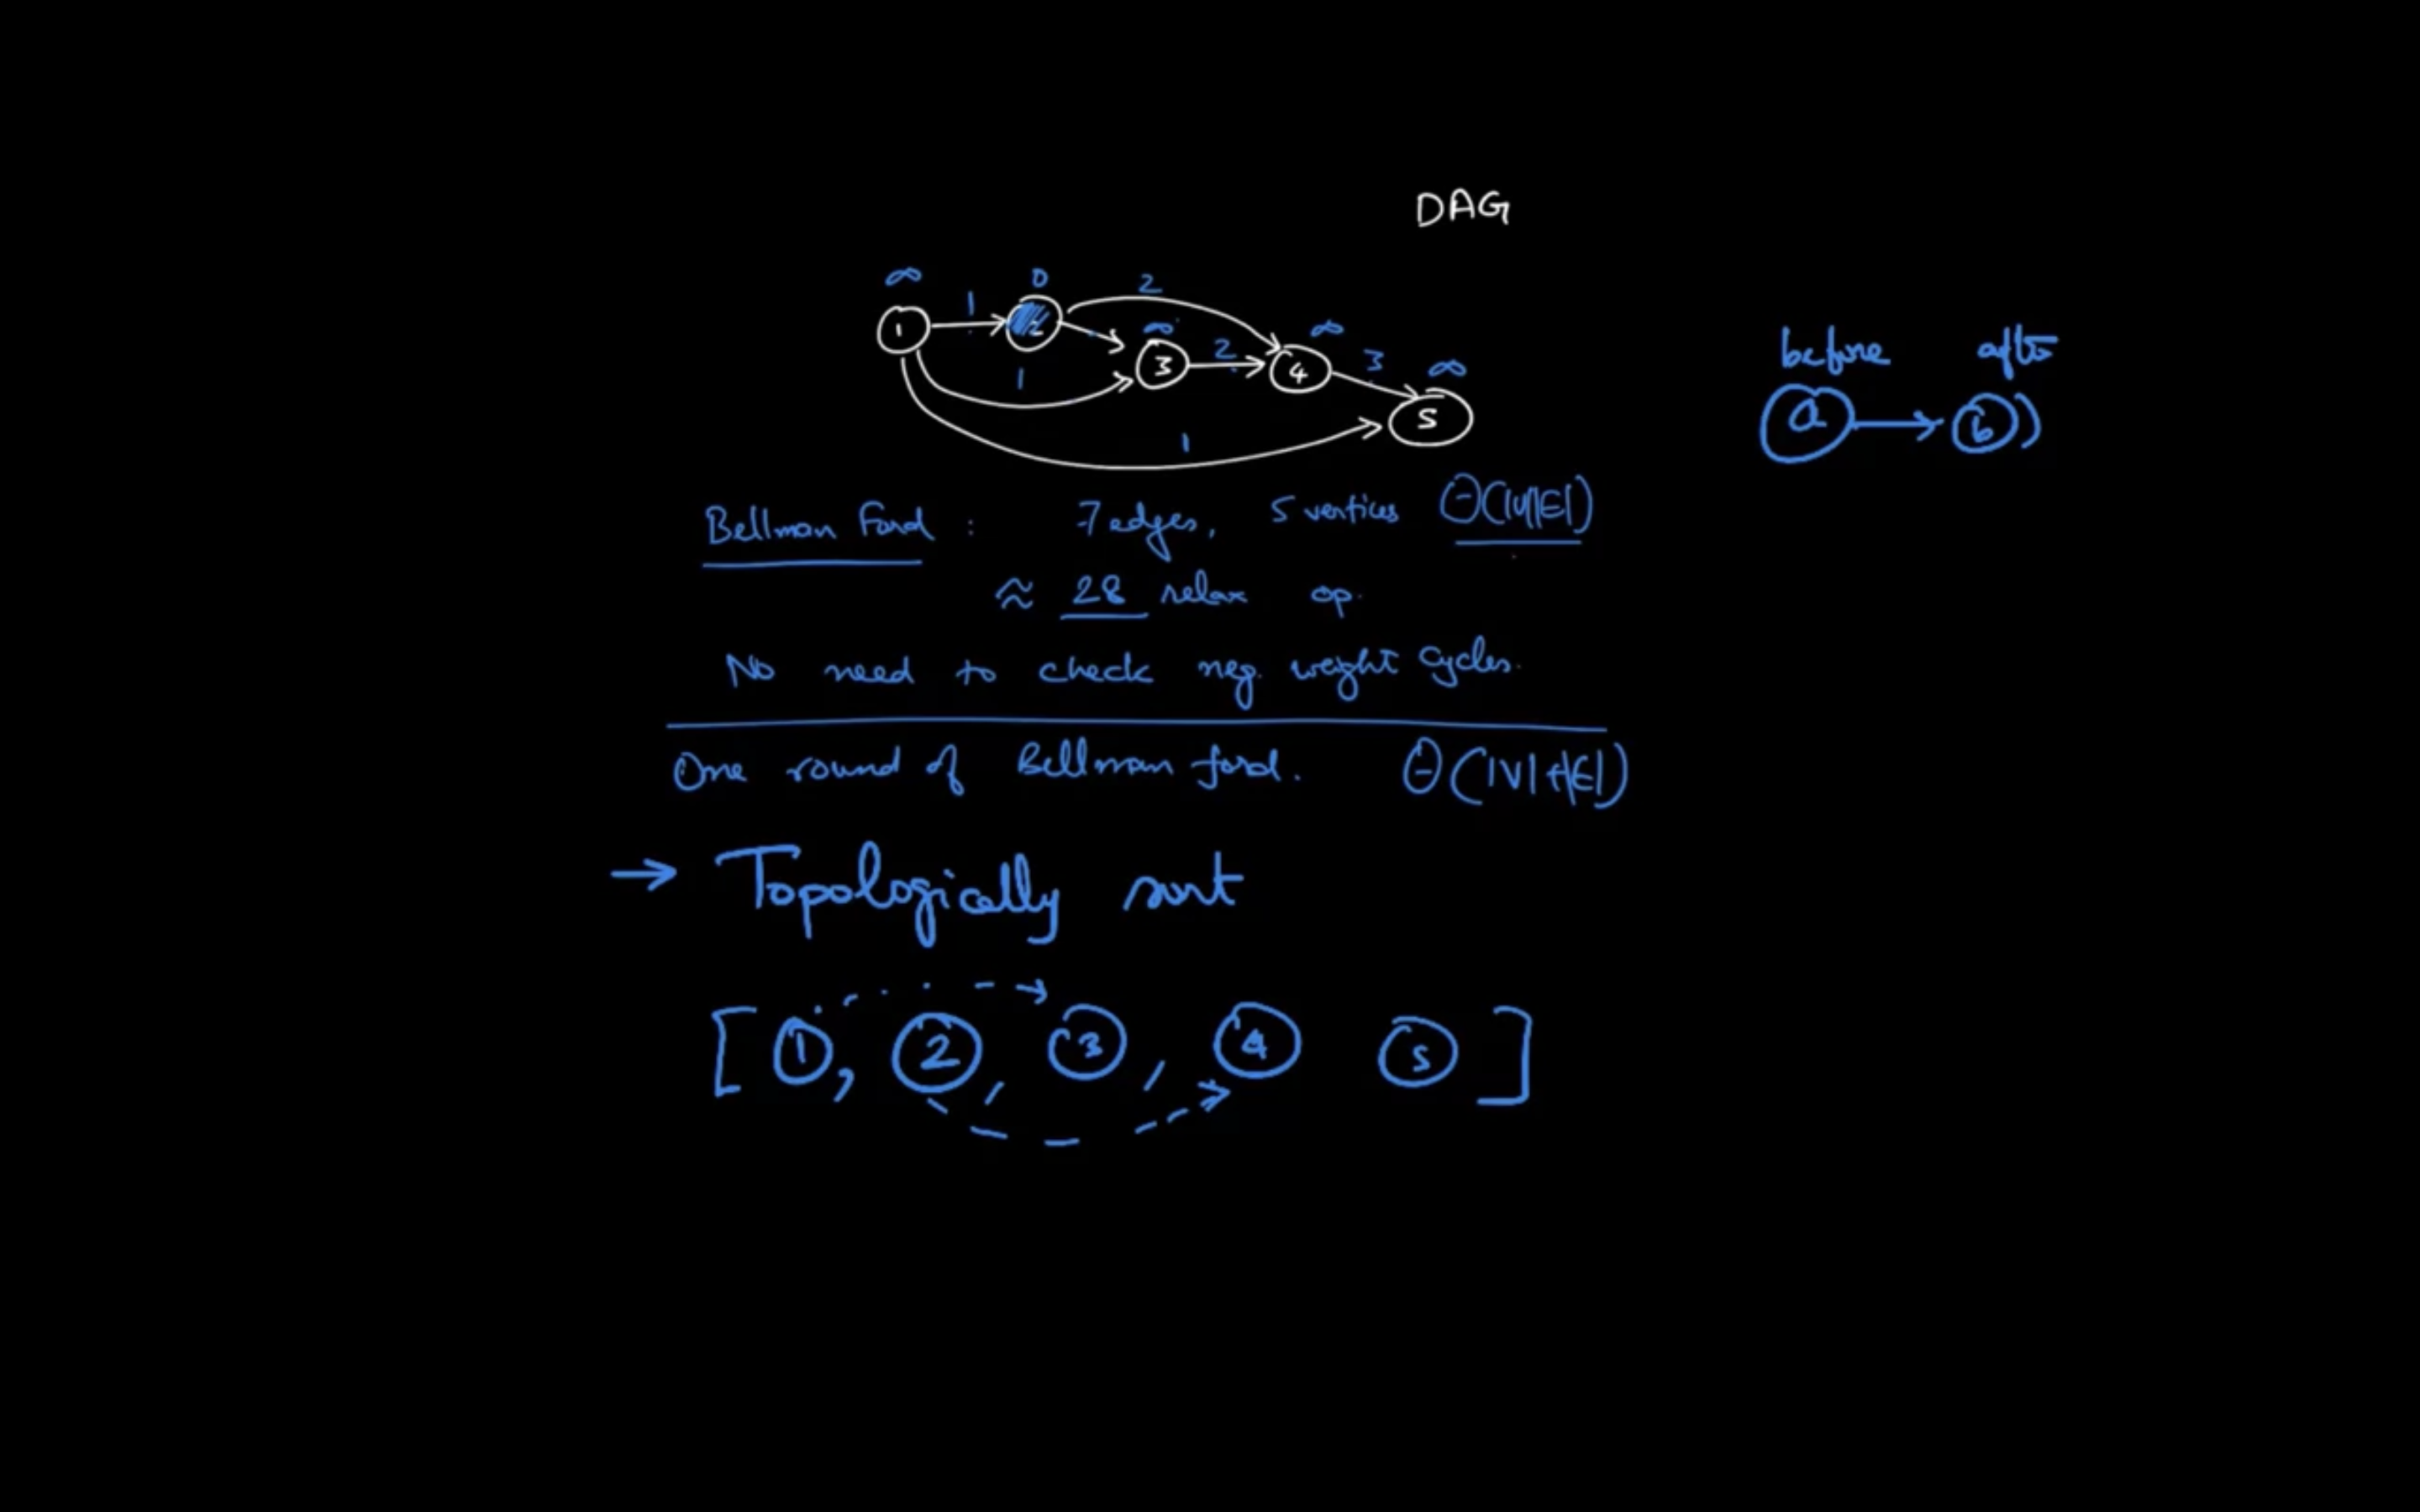 DAG
∞ 0 2
1 1 2 ∞ ∞
1 3 2 4 3 ∞
5
1
before after
a b
Bellman Ford : 7 edges, 5 vertices Θ(|V||E|)
≈ 28 relax op.
No need to check neg. weight cycles.
One round of Bellman ford. Θ(|V|+|E|)
→ Topologically sort
[ 1, 2, 3, 4 5 ]